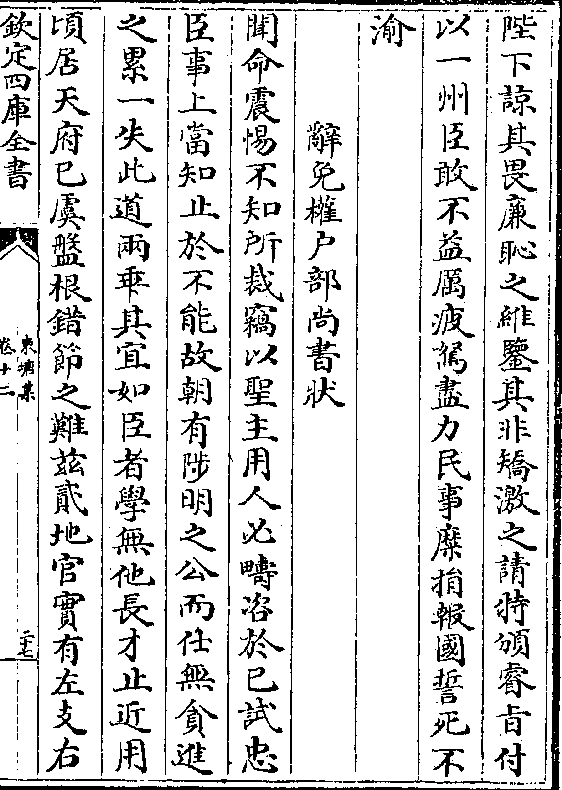 陛下諒其畏廉恥之維鑒其非矯激之請特頒睿旨付
以一州臣敢不益厲疲駑盡力民事糜捐報國誓死不
渝
辭免權户部尚書狀
聞命震惕不知所裁竊以聖主用人必疇咨於已試忠
臣事上當知止於不能故朝有陟明之公而仕無貪進
之累一失此道兩乖其宜如臣者學無他長才止近用
頃居天府已虞盤根錯節之難兹貳地官實有左支右
欽定四庫全書
東塘集
卷十二
二十七